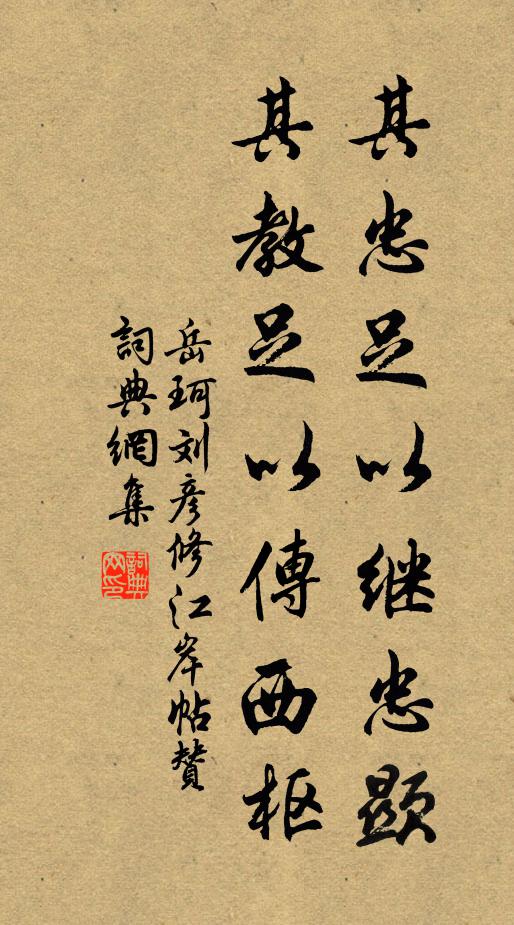 其忠足以继忠顯
其教足以傳西枢
岳珂刘彦修江岸帖贊
詞典網集
詞典网印